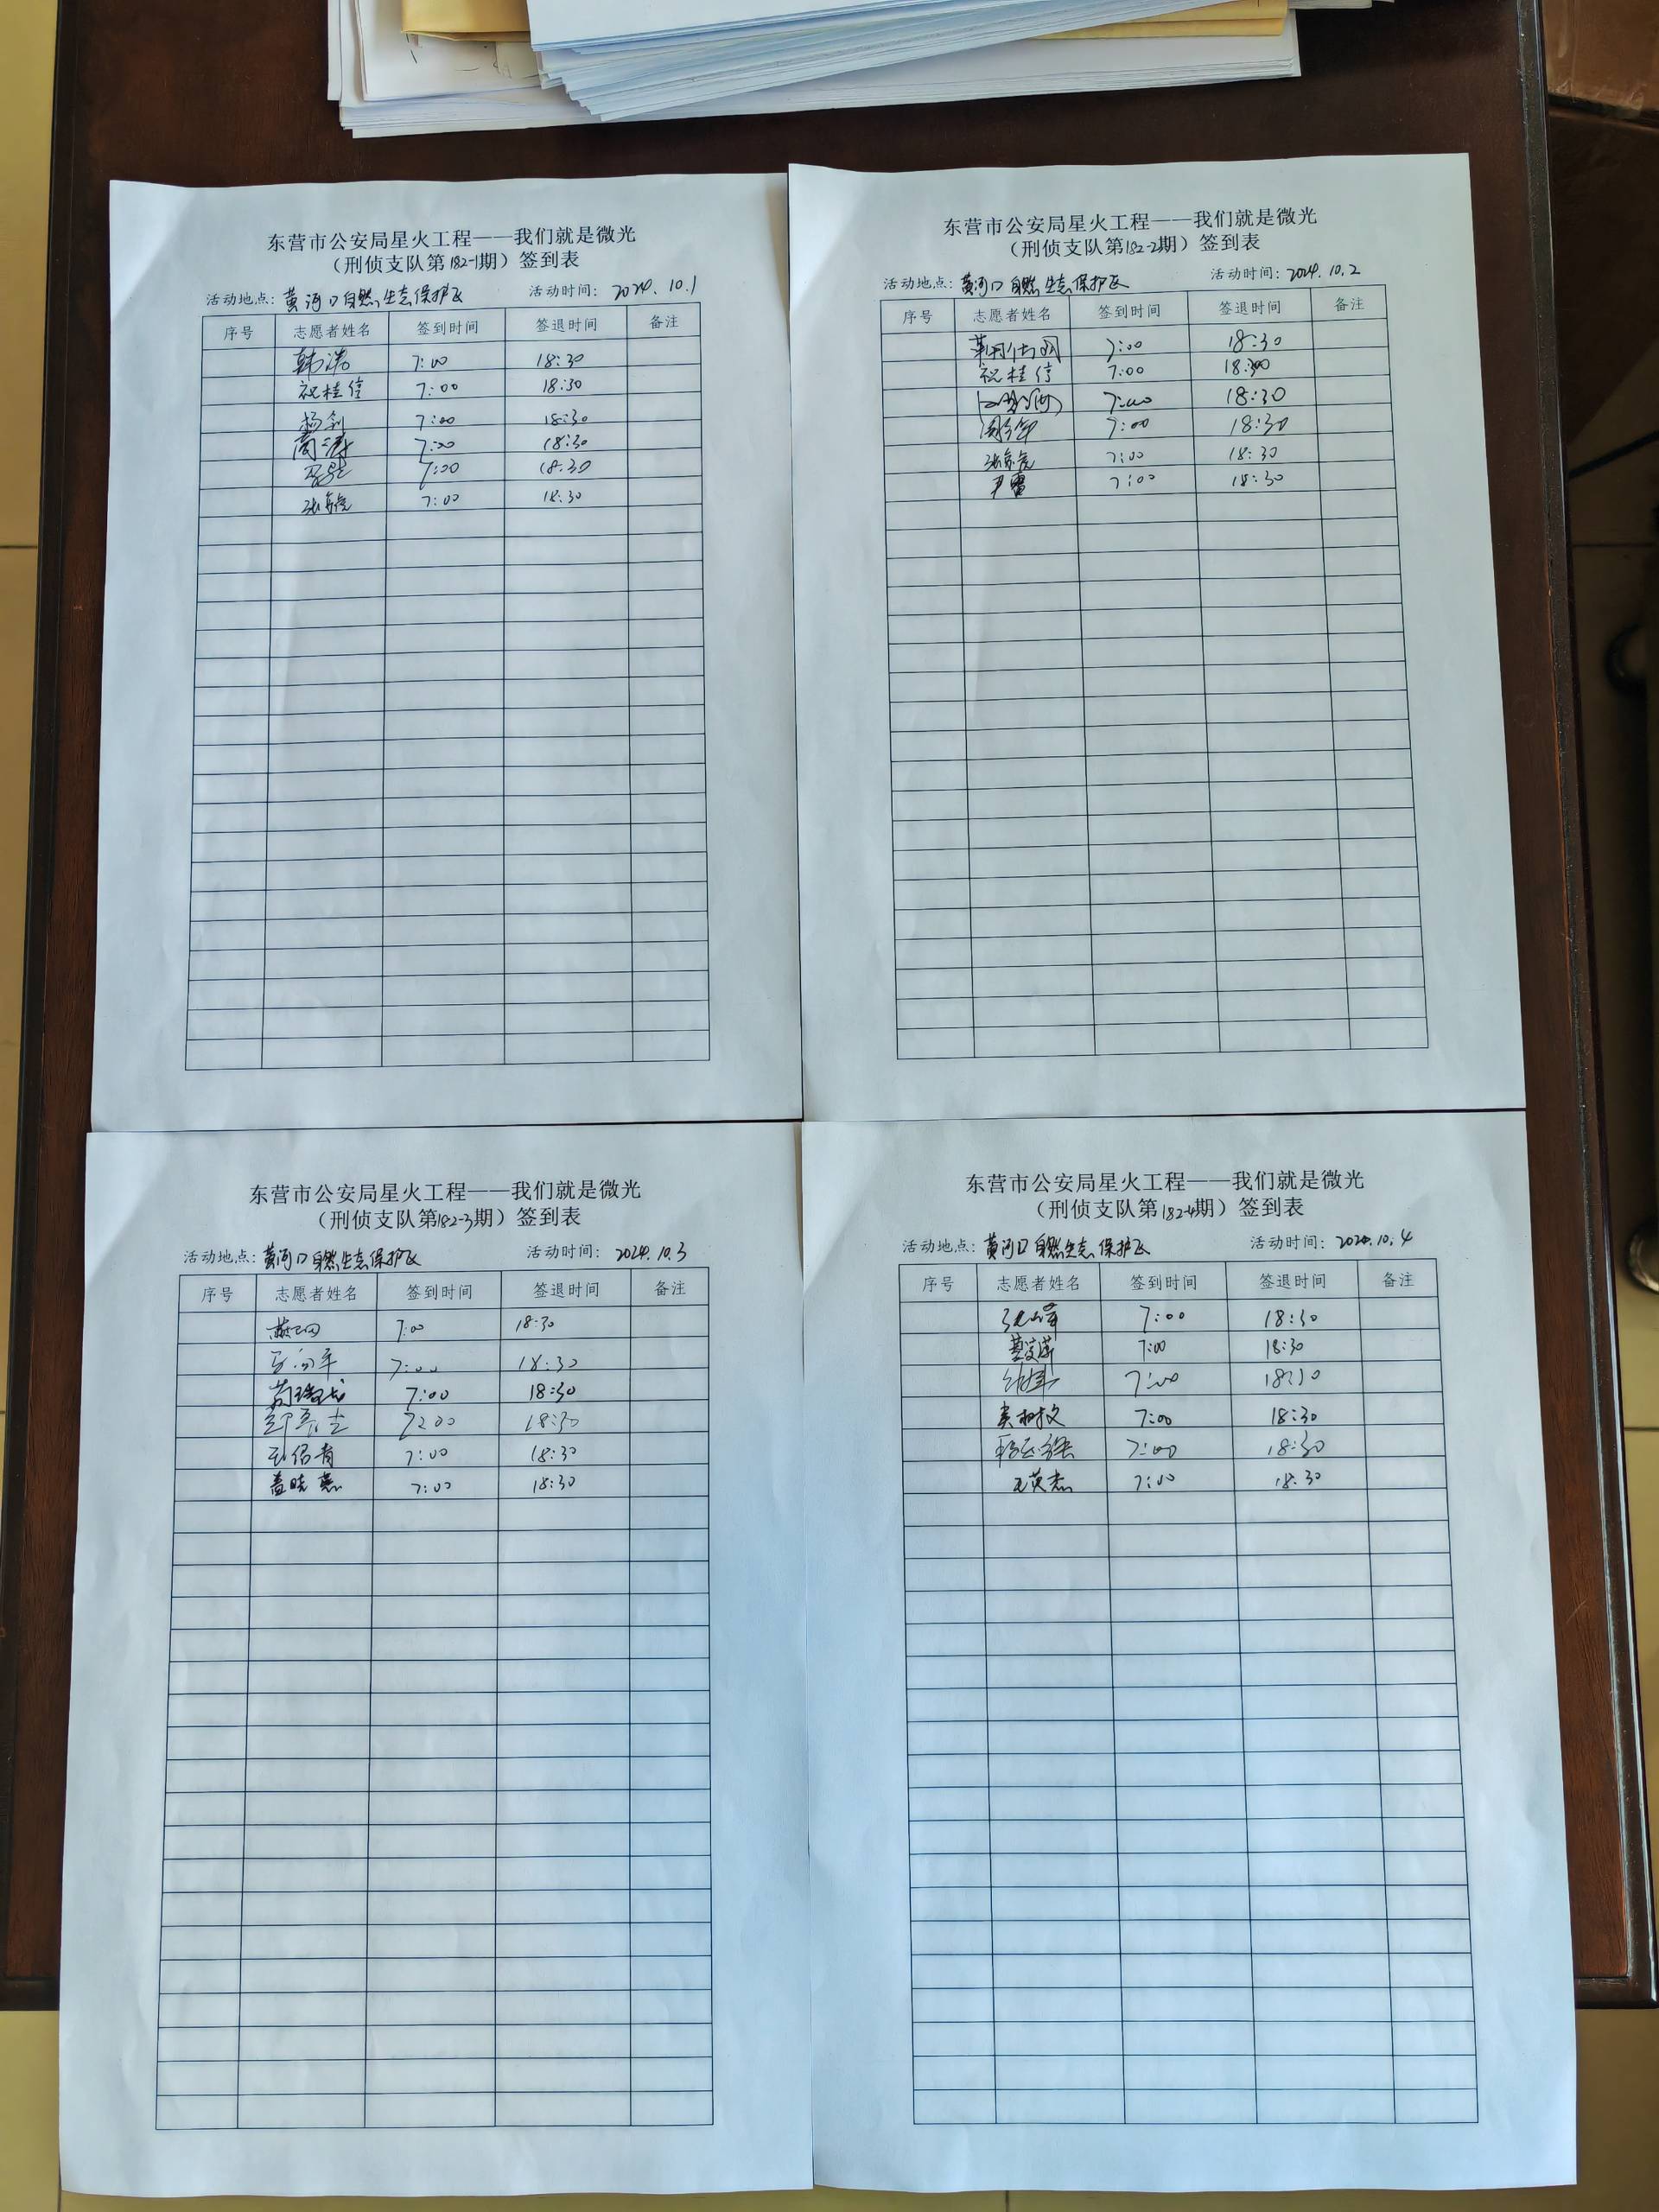 东营市公安局星火工程——我们就是微光
（刑侦支队第182-1期）签到表
活动地点：黄河口自然生态保护区 活动时间：2024.10.1
序号 志愿者姓名 签到时间 签退时间 备注
韩涛 7:00 18:30
祝桂信 7:00 18:30
杨剑 7:00 18:30
周涛 7:00 18:30
7:00 18:30
7:00 18:30
东营市公安局星火工程——我们就是微光
（刑侦支队第182-2期）签到表
活动地点：黄河口自然生态保护区 活动时间：2024.10.2
序号 志愿者姓名 签到时间 签退时间 备注
7:00 18:30
祝桂信 7:00 18:30
7:00 18:30
7:00 18:30
7:00 18:30
尹雷 7:00 18:30
东营市公安局星火工程——我们就是微光
（刑侦支队第182-3期）签到表
活动地点：黄河口自然生态保护区 活动时间：2024.10.3
序号 志愿者姓名 签到时间 签退时间 备注
7:00 18:30
7:00 18:30
7:00 18:30
7:00 18:30
7:00 18:30
盖晓燕 7:00 18:30
东营市公安局星火工程——我们就是微光
（刑侦支队第182-4期）签到表
活动地点：黄河口自然生态保护区 活动时间：2024.10.4
序号 志愿者姓名 签到时间 签退时间 备注
7:00 18:30
7:00 18:30
7:00 18:30
7:00 18:30
7:00 18:30
王英杰 7:00 18:30